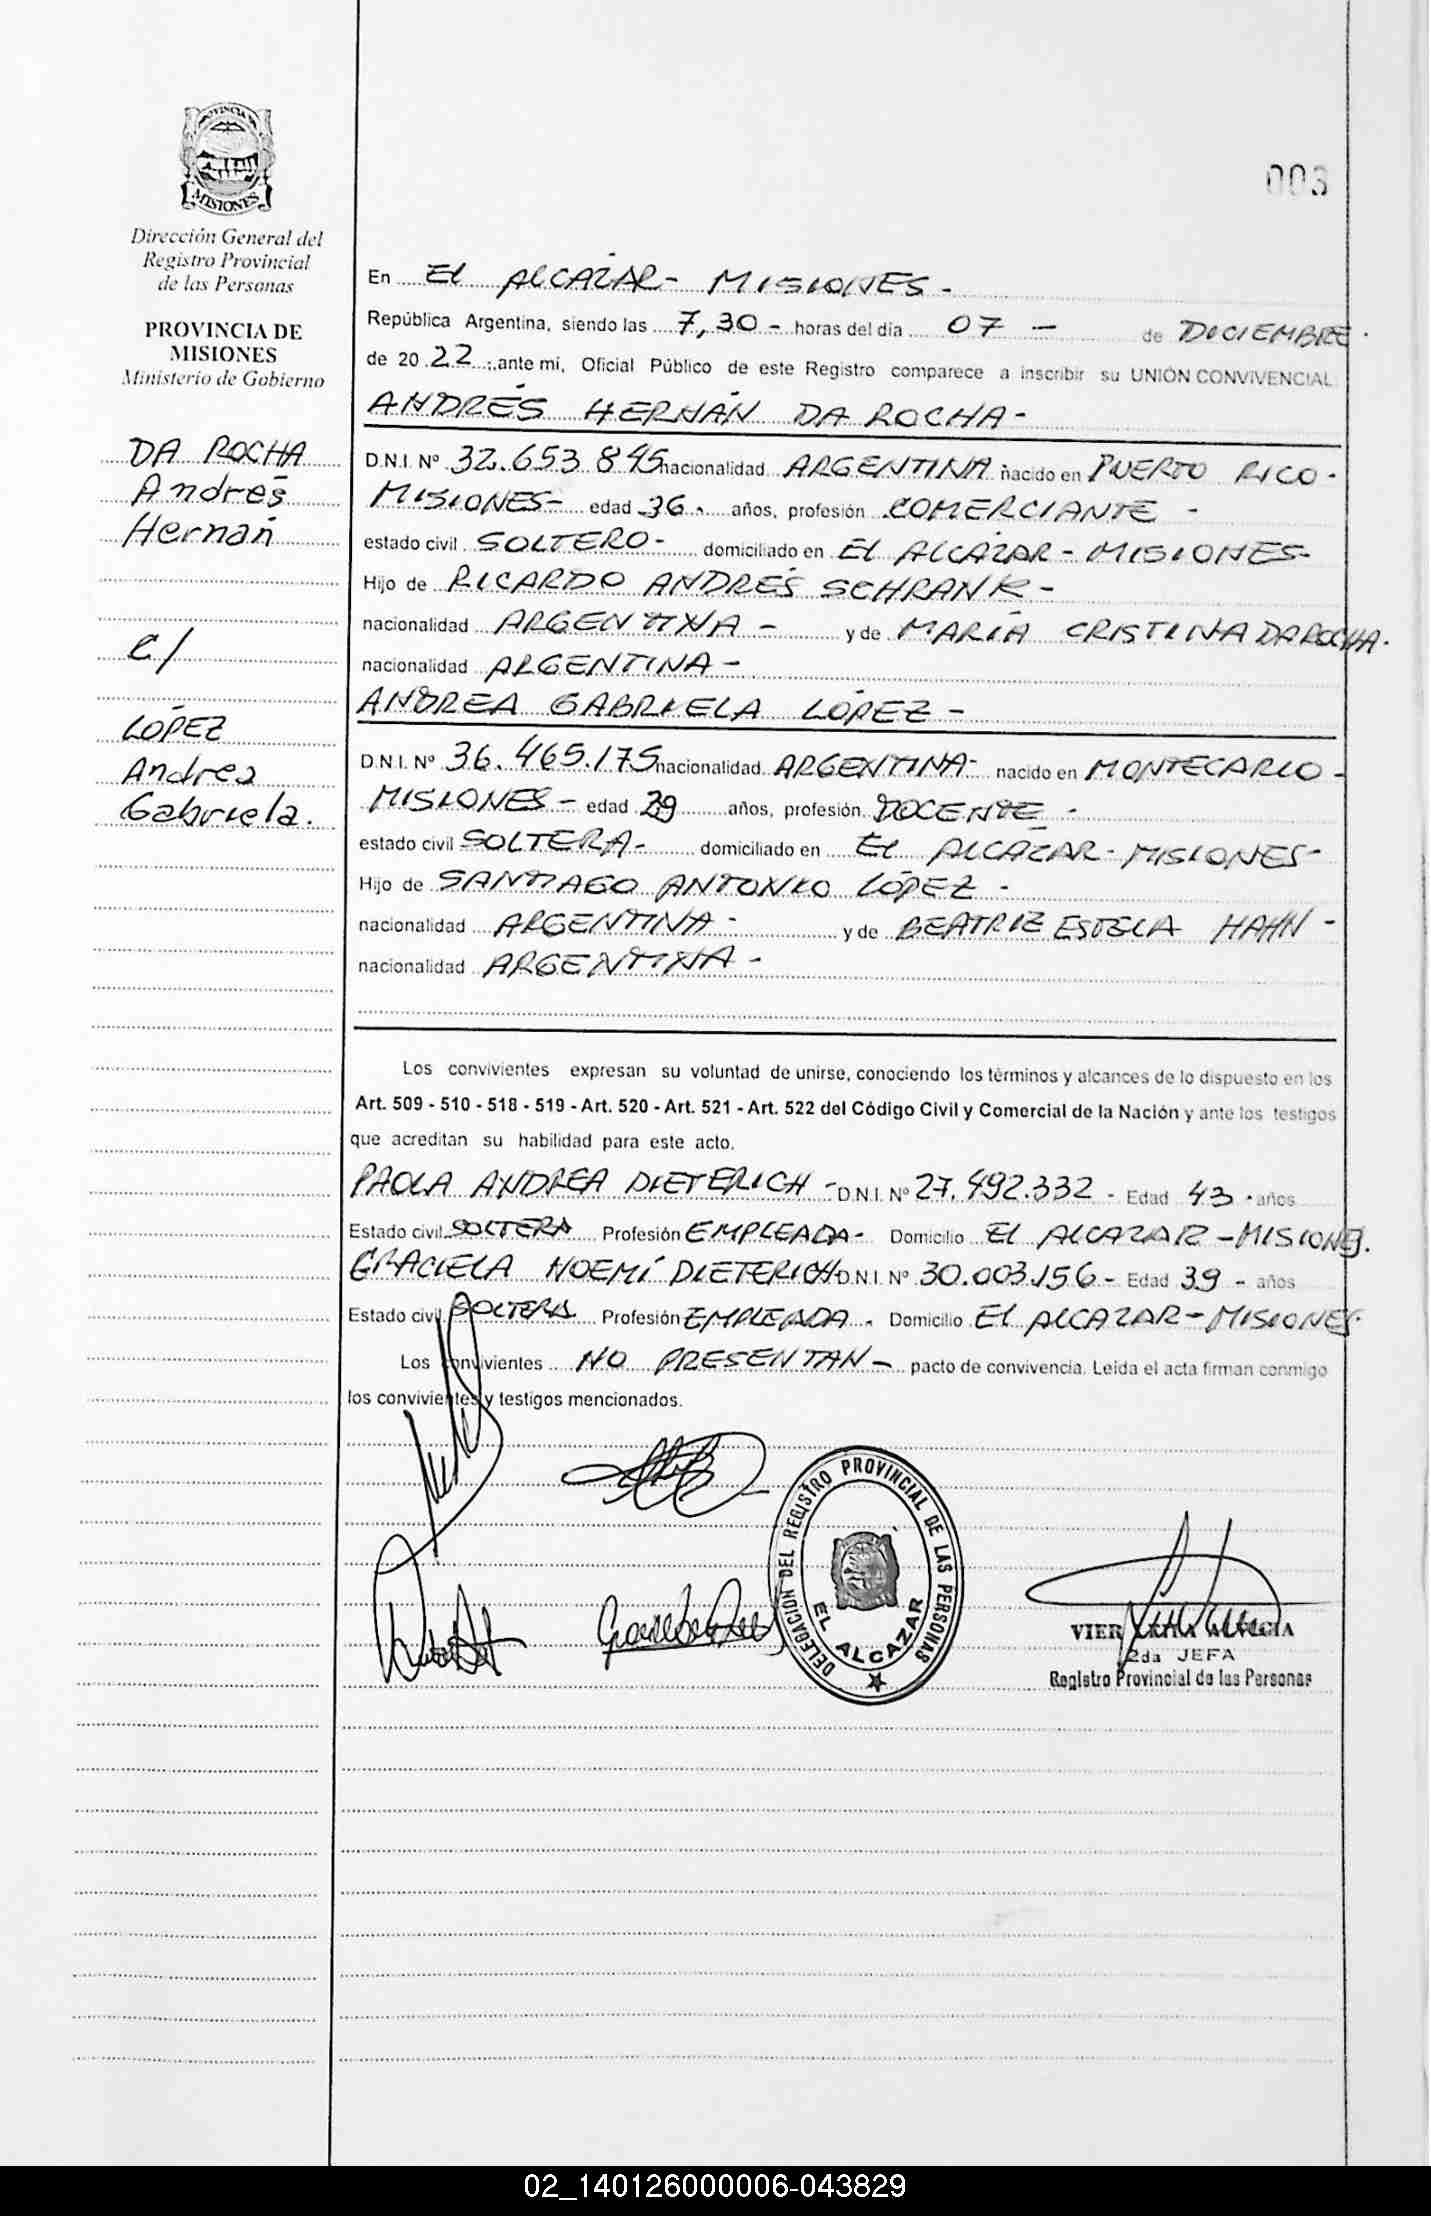 PROVINCIA DE
MISIONES
Dirección General del
Registro Provincial
de las Personas
PROVINCIA DE
MISIONES
Ministerio de Gobierno
DA ROCHA
Andrés
Hernán
C/
LÓPEZ
Andrea
Gabriela.
003
En EL ALCAZAR - MISIONES -
República Argentina, siendo las 7,30 - horas del día 07 - de DICIEMBRE.
de 2022, ante mí, Oficial Público de este Registro comparece a inscribir su UNIÓN CONVIVENCIAL:
ANDRÉS HERNÁN DA ROCHA -
D.N.I. Nº 32.653 845 nacionalidad ARGENTINA nacido en PUERTO RICO -
MISIONES - edad 36 - años, profesión COMERCIANTE -
estado civil SOLTERO - domiciliado en El ALCÁZAR - MISIONES -
Hijo de RICARDO ANDRÉS SCHRANK -
nacionalidad ARGENTINA - y de MARÍA CRISTINA DA ROCHA.
nacionalidad ARGENTINA -
ANDREA GABRIELA LÓPEZ -
D.N.I. Nº 36.465.175 nacionalidad ARGENTINA - nacido en MONTECARLO -
MISIONES - edad 29 años, profesión DOCENTE -
estado civil SOLTERA - domiciliado en EL ALCÁZAR - MISIONES -
Hijo de SANTIAGO ANTONIO LÓPEZ -
nacionalidad ARGENTINA - y de BEATRIZ ESTELA HAHN -
nacionalidad ARGENTINA -
Los convivientes expresan su voluntad de unirse, conociendo los términos y alcances de lo dispuesto en los
Art. 509 - 510 - 518 - 519 - Art. 520 - Art. 521 - Art. 522 del Código Civil y Comercial de la Nación y ante los testigos
que acreditan su habilidad para este acto.
PAOLA ANDREA DIETERICH - D.N.I. Nº 27.492.332 - Edad 43 - años
Estado civil SOLTERA Profesión EMPLEADA - Domicilio El ALCAZAR - MISIONES.
GRACIELA NOEMÍ DIETERICH D.N.I. Nº 30.003.156 - Edad 39 - años
Estado civil SOLTERA Profesión EMPLEADA - Domicilio El ALCAZAR - MISIONES.
Los convivientes NO PRESENTAN - pacto de convivencia. Leída el acta firman conmigo
los convivientes y testigos mencionados.
DELEGACION DEL REGISTRO PROVINCIAL DE LAS PERSONAS
EL ALCAZAR
VIER
2da JEFA
Registro Provincial de las Personas
02_140126000006-043829